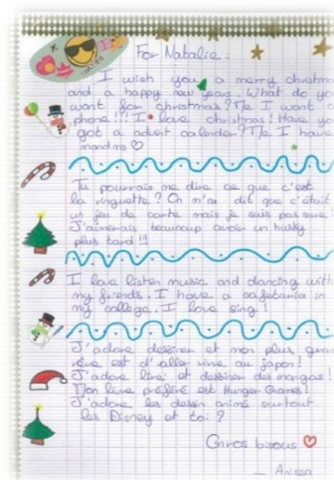 For Natalie :
I wish you a merry christm
and a happy new years. What do yo
want for christmas ? Me I want
phone !!! I love christmas ! Have yo
got a advent calender ? Me I have
m and ms ♡
Tu pourrais me dire ce que c'est
la ringuette ? On m'a dit que c'était
un jeu de carte mais je sais pas
J'aimerais beaucoup avoir un husky
plus tard !!!
I love listen music and dancing with
my friends. I have a cafetaria in
my collège. I love sing !
J'adore dessiner et mon plus gran
rêve est d'aller vivre au japon !
J'adore lire et dessiner des mangas !
Mon livre préféré est Hunger Games !
J'adore les dessin animé surtout
les Disney et toi ?
Gros bisous ♡